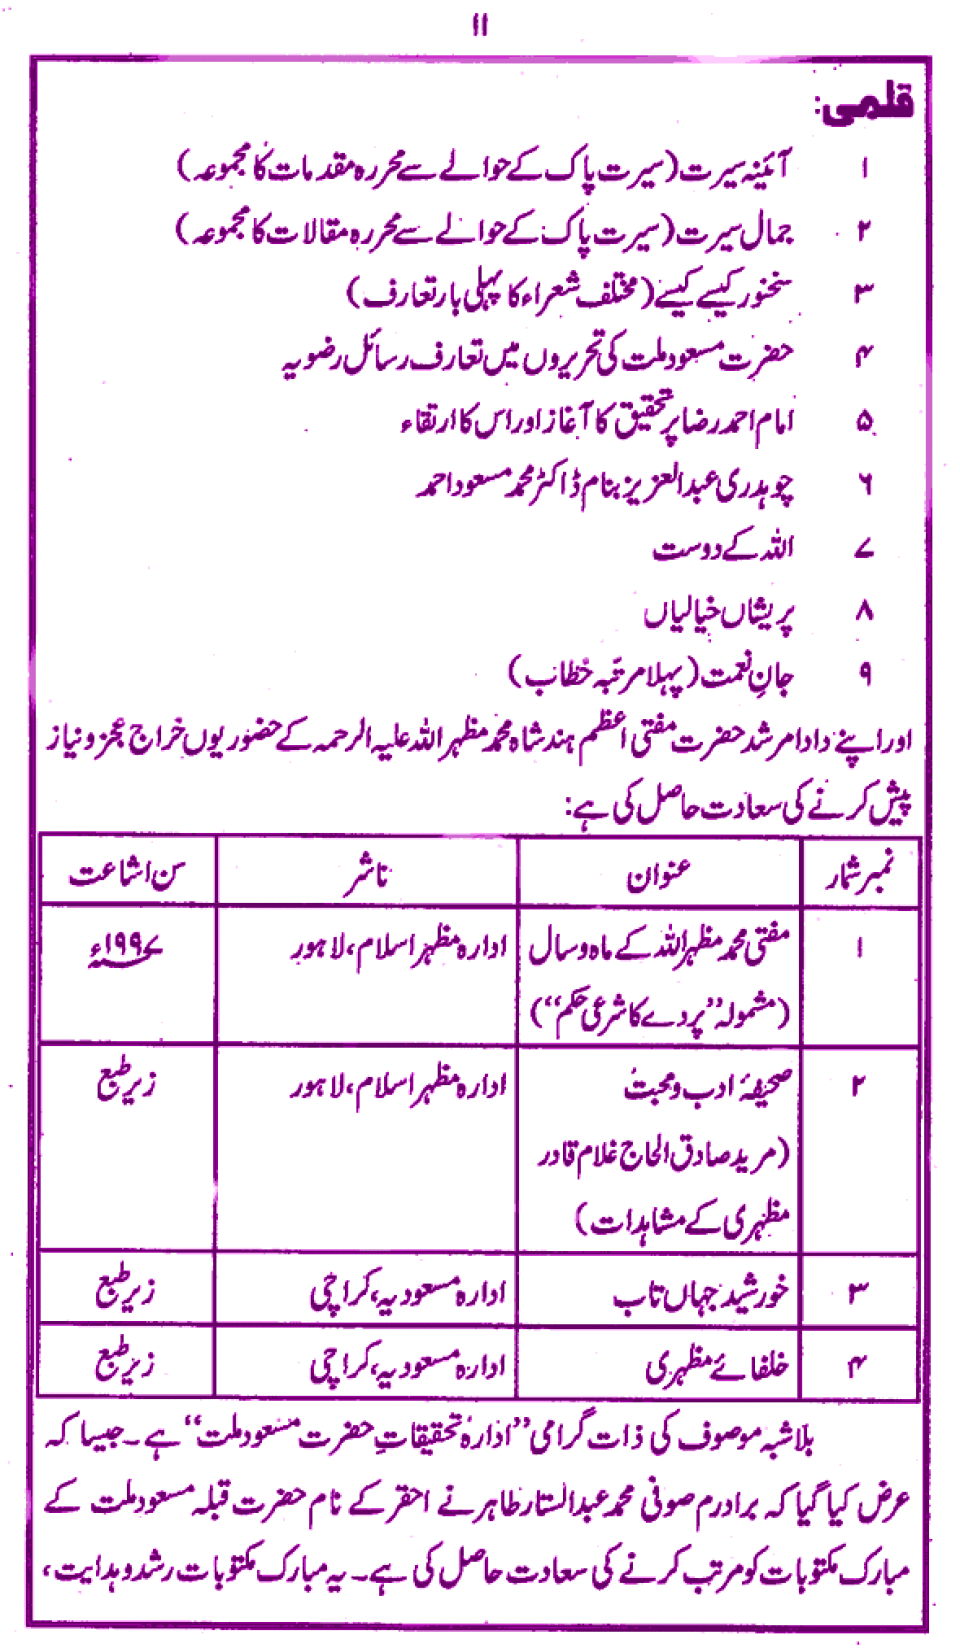 ۱۱
قلمی:
۱ آئینہ سیرت (سیرت پاک کے حوالے سے محررہ مقدمات کا مجموعہ)
۲ جمال سیرت (سیرت پاک کے حوالے سے محررہ مقالات کا مجموعہ)
۳ سخنور کیسے کیسے (مختلف شعراء کا پہلی بار تعارف)
۴ حضرت مسعود ملت کی تحریروں میں تعارف رسائل رضویہ
۵ امام احمد رضا پر تحقیق کا آغاز اور اس کا ارتقاء
۶ چوہدری عبدالعزیز بنام ڈاکٹر محمد مسعود احمد
۷ اللہ کے دوست
۸ پریشاں خیالیاں
۹ جانِ نعمت (پہلا مرتبہ خطاب)
اور اپنے دادا مرشد حضرت مفتی اعظم ہند شاہ محمد مظہر اللہ علیہ الرحمہ کے حضور یوں خراج عجز و نیاز
پیش کرنے کی سعادت حاصل کی ہے:
نمبر شمار عنوان ناشر سن اشاعت
۱ مفتی محمد مظہر اللہ کے ماہ و سال ادارہ مظہر اسلام، لاہور ۱۹۹۷ء
(مشمولہ ”پردے کا شرعی حکم“)
۲ صحیفۂ ادب و محبت ادارہ مظہر اسلام، لاہور زیر طبع
(مرید صادق الحاج غلام قادر
مظہری کے مشاہدات)
۳ خورشید جہاں تاب ادارہ مسعودیہ، کراچی زیر طبع
۴ خلفائے مظہری ادارہ مسعودیہ، کراچی زیر طبع
بلاشبہ موصوف کی ذات گرامی ”ادارۂ تحقیقاتِ حضرت مسعود ملت“ ہے۔ جیسا کہ
عرض کیا گیا کہ برادرم صوفی محمد عبدالستار طاہر نے احقر کے نام حضرت قبلہ مسعود ملت کے
مبارک مکتوبات کو مرتب کرنے کی سعادت حاصل کی ہے۔ یہ مبارک مکتوبات رشد و ہدایت،